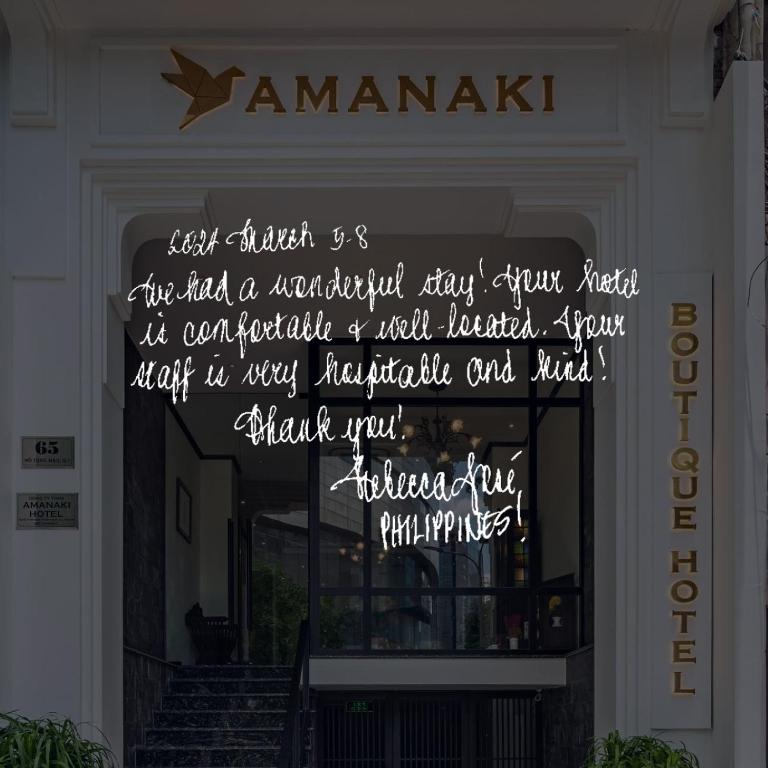 AMANAKI
2024 March 5-8
We had a wonderful stay! Your hotel
is comfortable & well-located. Your
staff is very hospitable and kind!
Thank you!
Rebecca José,
PHILIPPINES!
BOUTIQUE HOTEL
65
AMANAKI
HOTEL